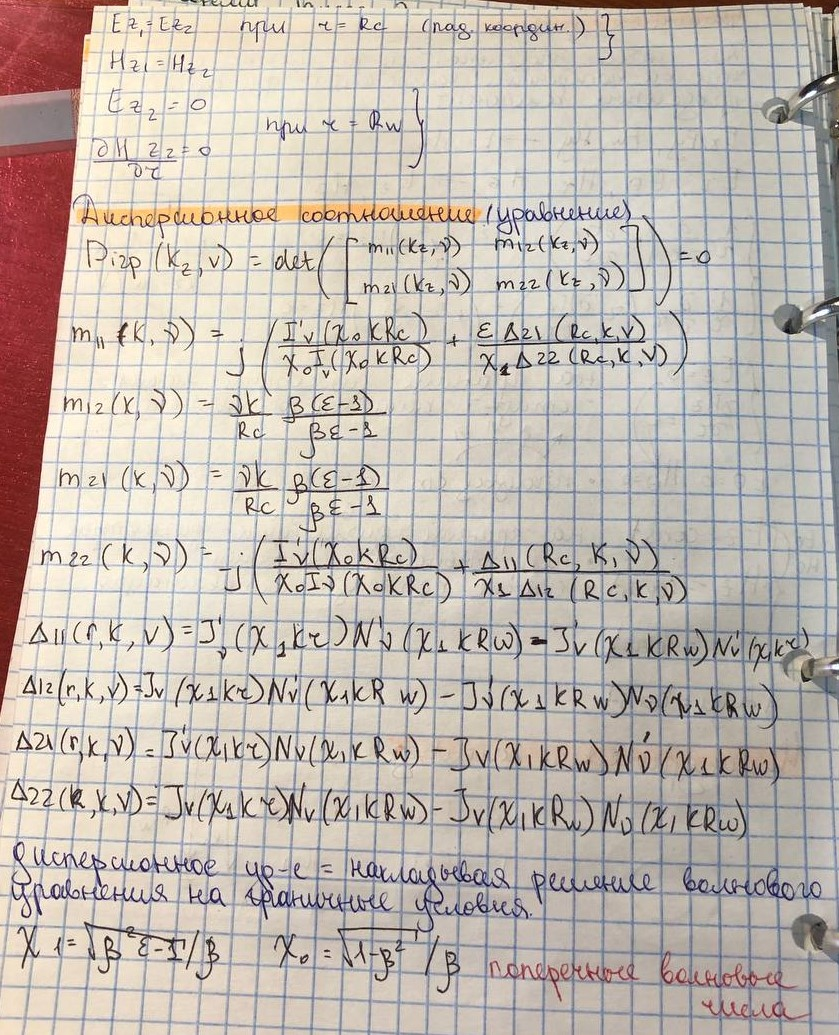 Ez₁ = Ez₂ при r = Rc (пад. координ.) }
Hz₁ = Hz₂
Ez₂ = 0
при r = Rw }
∂Hz₂/∂r = 0
Дисперсионное соотношение (уравнение)
Dizp (kz, ν) = det([m₁₁(kz,ν) m₁₂(kz,ν)
m₂₁(kz,ν) m₂₂(kz,ν)]) = 0
m₁₁(k,ν) = j (I'ν(χ₀kRc)/χ₀Iν(χ₀kRc) + ε Δ₂₁(Rc,k,ν)/χ₁Δ₂₂(Rc,k,ν))
m₁₂(k,ν) = νk/Rc β(ε-1)/βε-1
m₂₁(k,ν) = νk/Rc β(ε-1)/βε-1
m₂₂(k,ν) = j (I'ν(χ₀kRc)/χ₀Iν(χ₀kRc) + Δ₁₁(Rc,k,ν)/χ₁Δ₁₂(Rc,k,ν)
Δ₁₁(r,k,ν) = J'ν(χ₁kr)N'ν(χ₁kRw) - J'ν(χ₁kRw)N'ν(χ₁kr)
Δ₁₂(r,k,ν) = Jν(χ₁kr)N'ν(χ₁kRw) - J'ν(χ₁kRw)Nν(χ₁kRw)
Δ₂₁(r,k,ν) = J'ν(χ₁kr)Nν(χ₁kRw) - Jν(χ₁kRw)N'ν(χ₁kRw)
Δ₂₂(R,k,ν) = Jν(χ₁kr)Nν(χ₁kRw) - Jν(χ₁kRw)Nν(χ₁kRw)
дисперсионное ур-е = накладывая решение волнового
уравнения на граничные условия.
χ₁ = √β²ε-1/β χ₀ = √1-β²/β поперечные волновые
числа